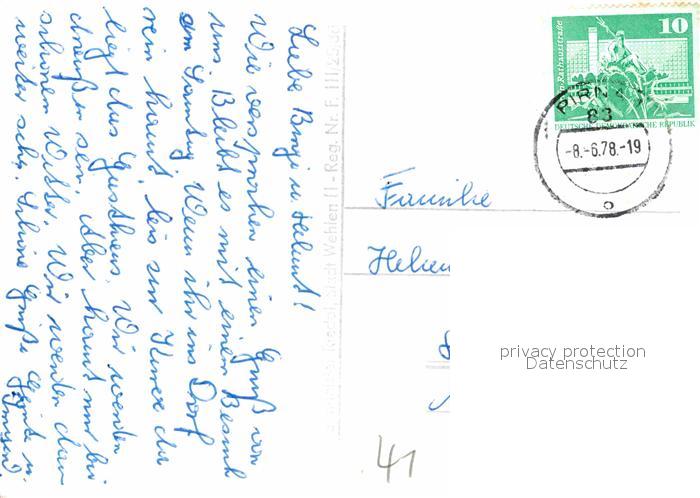 Liebe Birgi u. Helmut!
Wie versprochen einen Gruß von
uns. Bleibt es mit einem Besuch
am Samstag. Wenn ihr ins Dorf
rein kommt, bis zur Kurve da
liegt das Gasthaus. Wir werden
draußen sein. Aber kommt nur bei
schönem Wetter. Wir werden dann
weiter sehn. Schöne Grüße
Familie
Helm
41
10
Rathausstraße
DEUTSCHE DEMOKRATISCHE REPUBLIK
PIRNA
83
-8.-6.78.-19
Stadt Wehlen (1 - Reg. Nr. F. III/25
privacy protection
Datenschutz